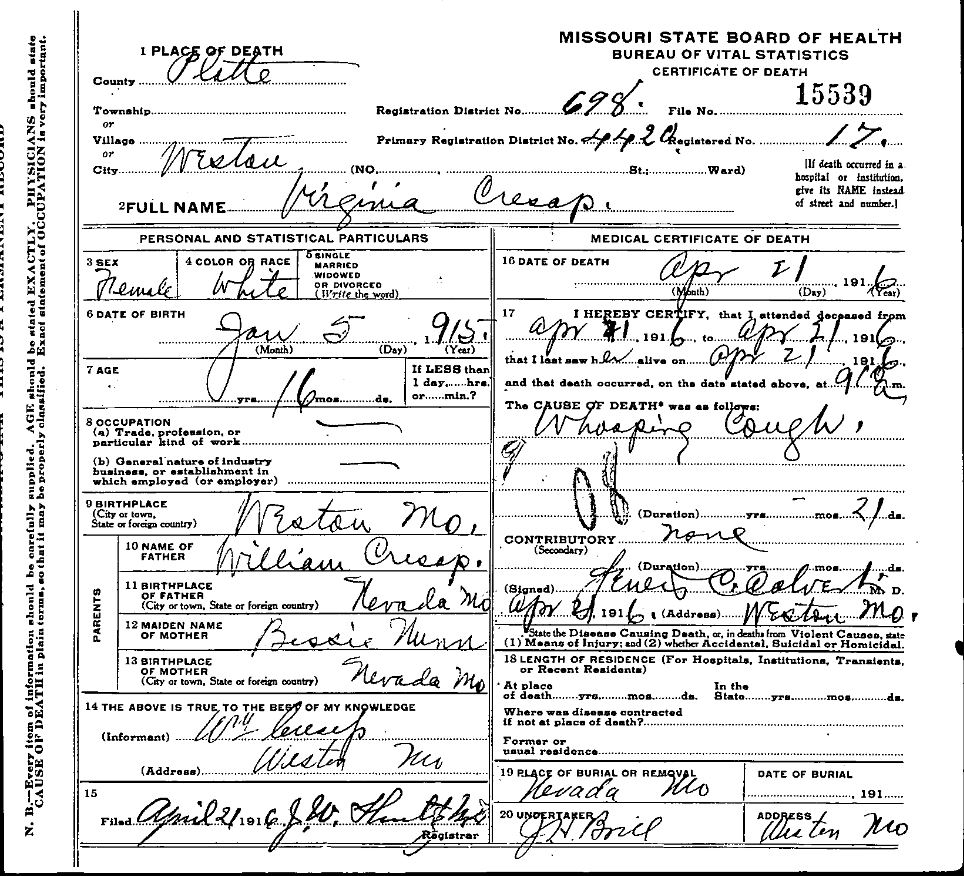 MISSOURI STATE BOARD OF HEALTH
BUREAU OF VITAL STATISTICS
CERTIFICATE OF DEATH
1 PLACE OF DEATH
County Platte
Township
or
Village
or
City Weston (NO. , St.; Ward)
Registration District No. 698. File No. 15539
Primary Registration District No. 4420 Registered No. 17.
[If death occurred in a
hospital or institution,
give its NAME instead
of street and number.]
2 FULL NAME Virginia Cresap.
PERSONAL AND STATISTICAL PARTICULARS
3 SEX
Female
4 COLOR OR RACE
White
5 SINGLE
MARRIED
WIDOWED
OR DIVORCED
(Write the word)
6 DATE OF BIRTH
Jan 5 , 1915.
(Month) (Day) (Year)
7 AGE
yrs. 16 mos. ds.
If LESS than
1 day,.....hrs.
or......min.?
8 OCCUPATION
(a) Trade, profession, or
particular kind of work
(b) General nature of industry
business, or establishment in
which employed (or employer)
9 BIRTHPLACE
(City or town,
State or foreign country)
Weston Mo.
PARENTS
10 NAME OF
FATHER
William Cresap.
11 BIRTHPLACE
OF FATHER
(City or town, State or foreign country)
Nevada Mo
12 MAIDEN NAME
OF MOTHER
Bessie Nunn
13 BIRTHPLACE
OF MOTHER
(City or town, State or foreign country)
Nevada Mo
14 THE ABOVE IS TRUE TO THE BEST OF MY KNOWLEDGE
(Informant) Wm Cresap
(Address) Weston Mo
15
Filed April 21 1916 J. W.
Registrar
MEDICAL CERTIFICATE OF DEATH
16 DATE OF DEATH
Apr 21 , 1916
(Month) (Day) (Year)
17 I HEREBY CERTIFY, that I attended deceased from
Apr 21, 1916, to Apr 21, 1916
that I last saw her alive on Apr 21 1916
and that death occurred, on the date stated above, at m.
The CAUSE OF DEATH* was as follows:
Whooping Cough.
9
08
(Duration) yrs. - mos. 21 ds.
CONTRIBUTORY none
(Secondary)
(Duration) yrs. mos. ds.
(Signed) Lewis C. Calvert M. D.
Apr 21 1916. (Address) Weston Mo.
*State the Disease Causing Death, or, in deaths from Violent Causes, state
(1) Means of Injury; and (2) whether Accidental, Suicidal or Homicidal.
18 LENGTH OF RESIDENCE (For Hospitals, Institutions, Transients,
or Recent Residents)
At place In the
of death.......yrs.......mos.......ds. State.......yrs.......mos.......ds.
Where was disease contracted
if not at place of death?
Former or
usual residence
19 PLACE OF BURIAL OR REMOVAL
Nevada Mo
DATE OF BURIAL
, 191
20 UNDERTAKER
J H Brill
ADDRESS
Weston Mo
N. B.—Every item of information should be carefully supplied. AGE should be stated EXACTLY. PHYSICIANS should state
CAUSE OF DEATH in plain terms, so that it may be properly classified. Exact statement of OCCUPATION is very important.